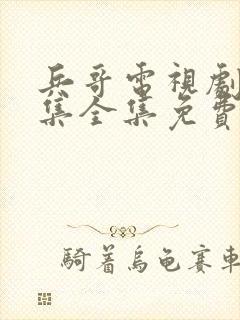 兵哥電視劇
集全集免費
騎着烏龜賽車